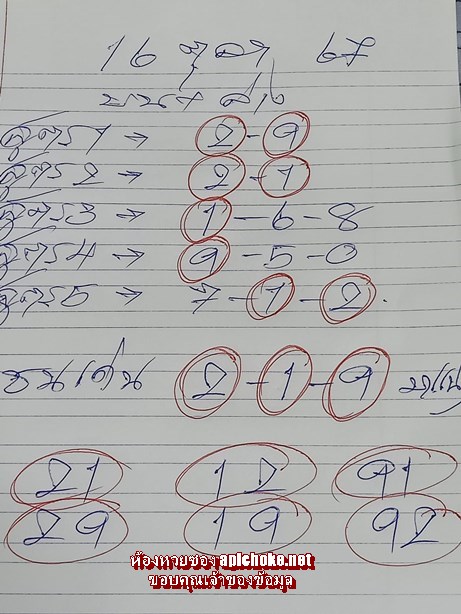 16 ตุลา 67
บนล่าง
สูตร1 → 2-9
สูตร2 → 2-1
สูตร3 → 1-6-8
สูตร4 → 9-5-0
สูตร5 → 7-1-2.
ชนเด่น 2-1-9
21 12 91
29 19 92
ห้องหวยซอง apichoke.net
ขอบคุณเจ้าของข้อมูล